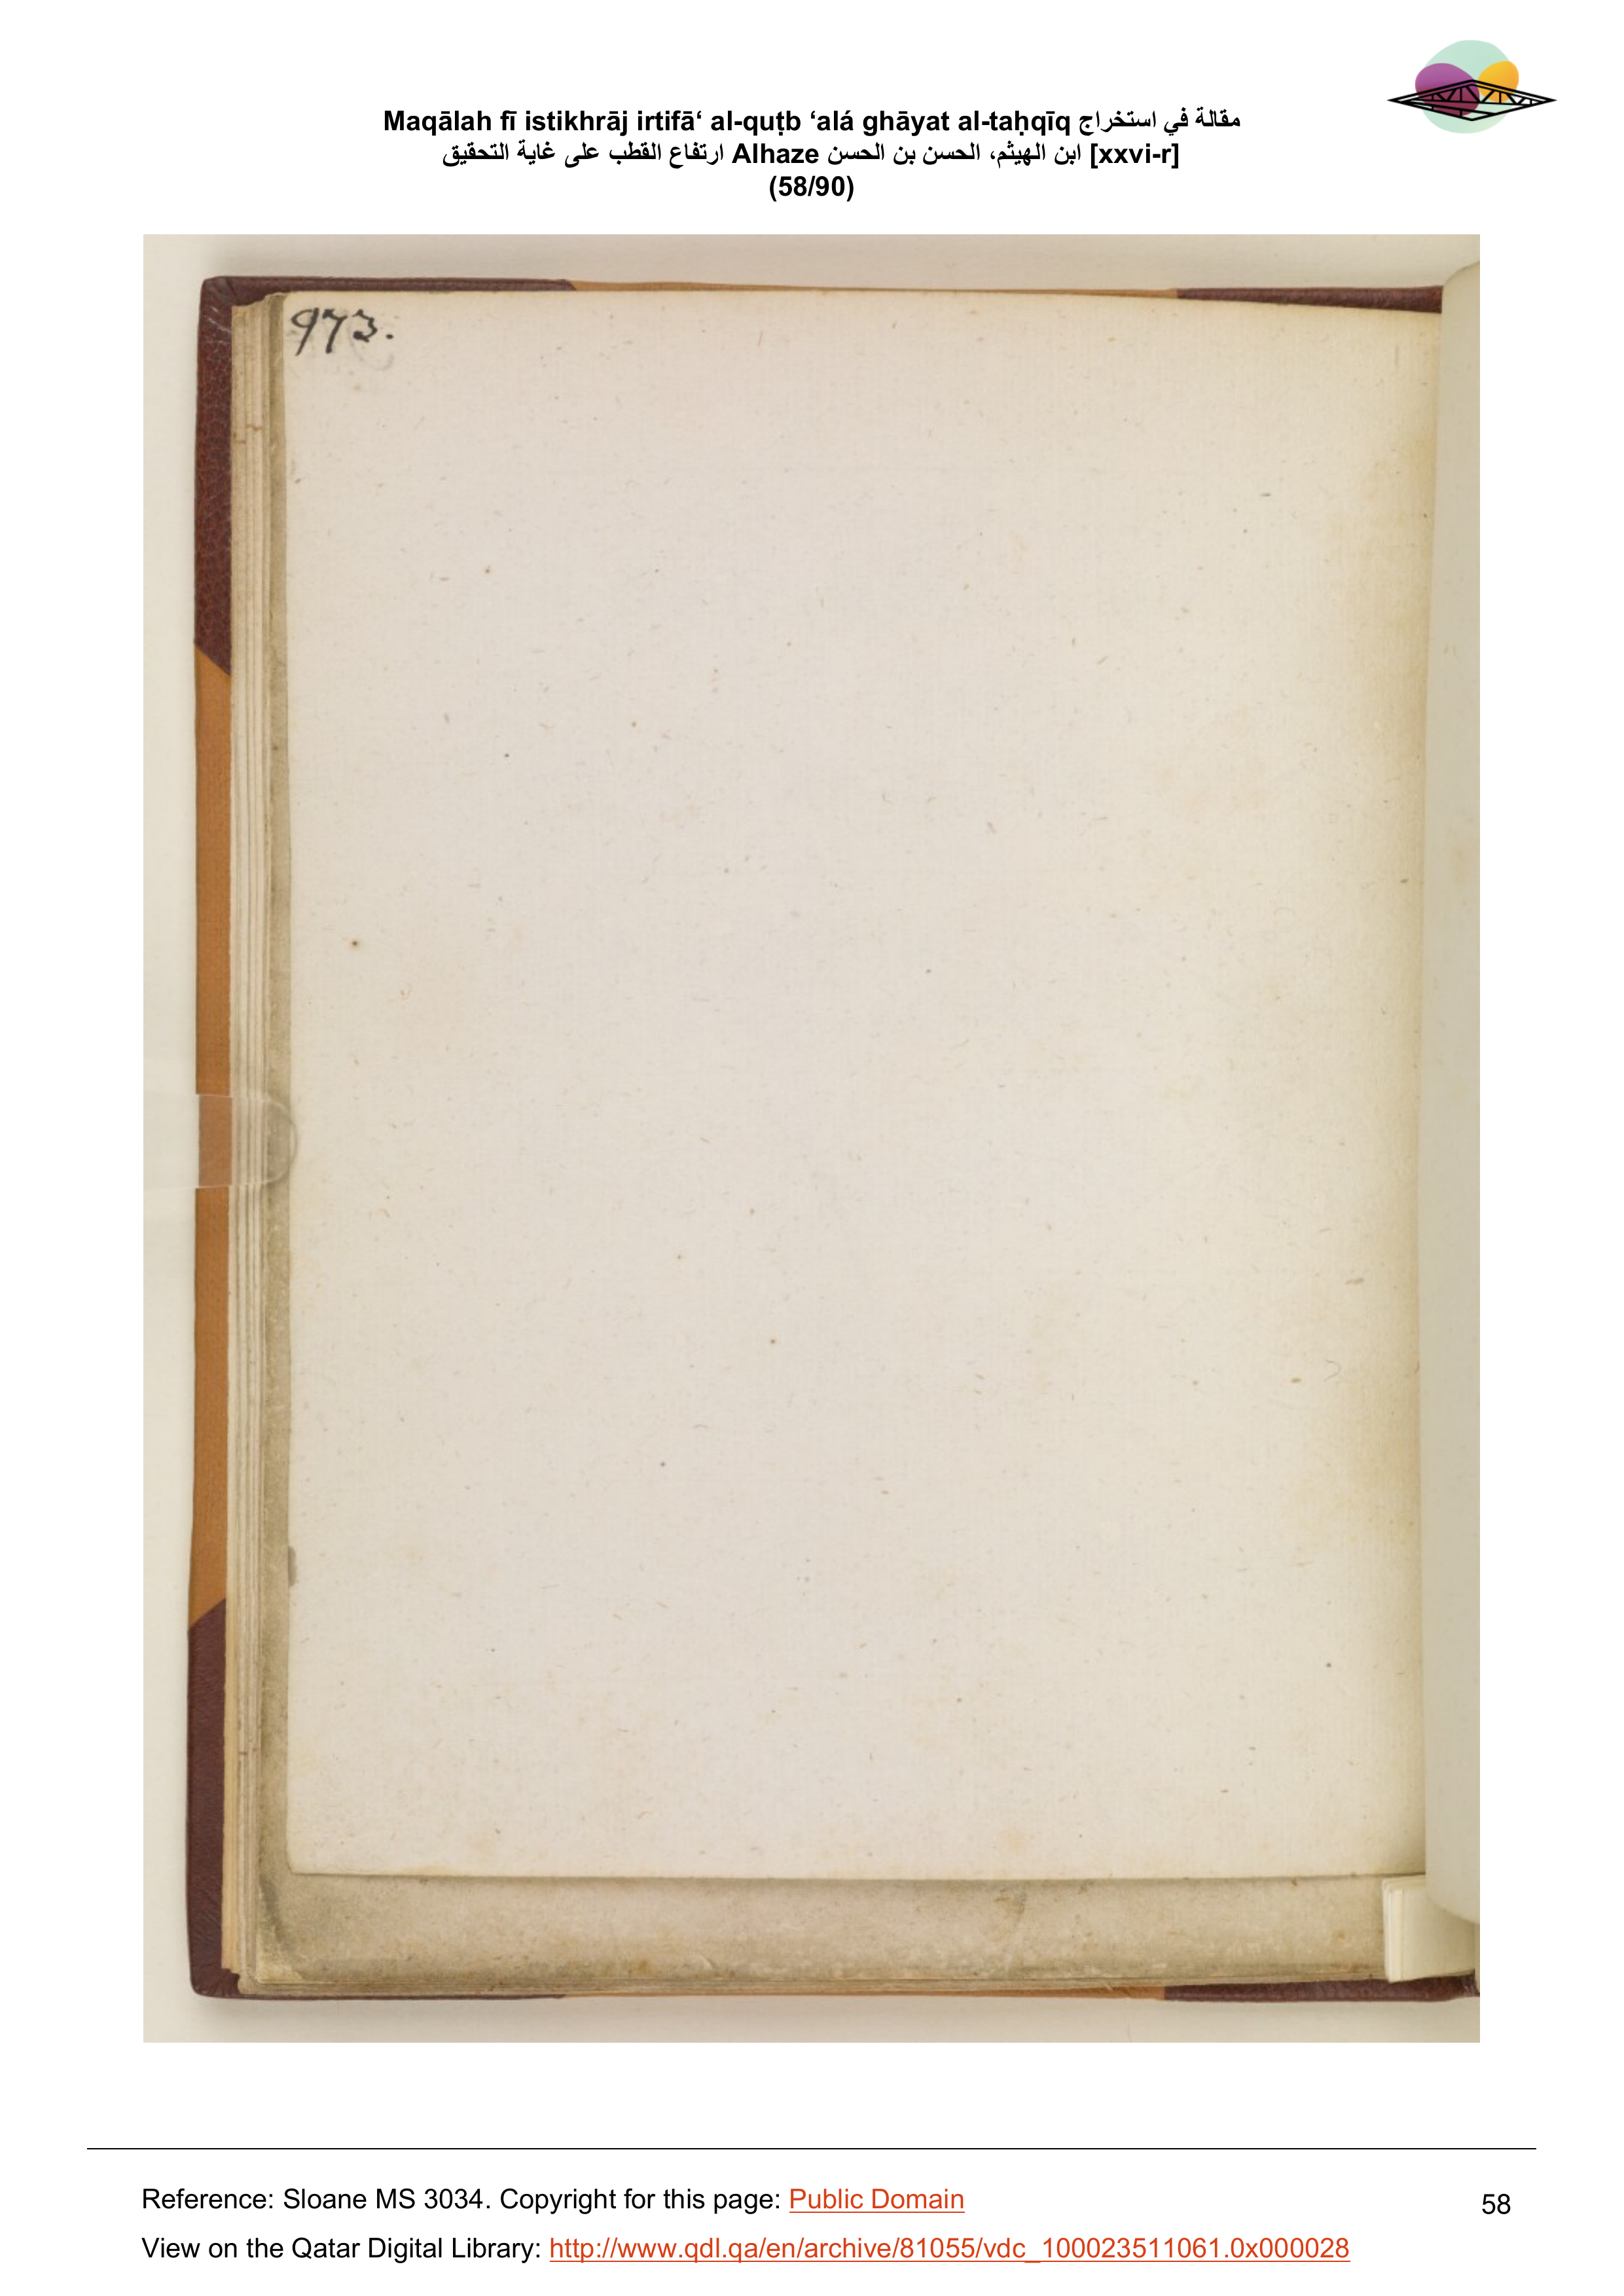 Maqālah fī istikhrāj irtifā‘ al-quṭb ‘alá ghāyat al-taḥqīq مقالة في استخراج
ارتفاع القطب على غاية التحقيق Alhaze ابن الهيثم، الحسن بن الحسن [xxvi-r]
(58/90)
973.
Reference: Sloane MS 3034. Copyright for this page: Public Domain
58
View on the Qatar Digital Library: http://www.qdl.qa/en/archive/81055/vdc_100023511061.0x000028